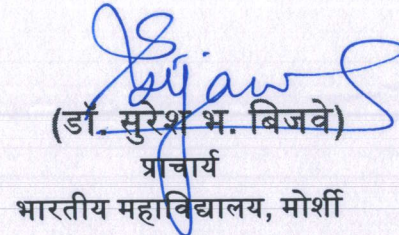 (डॉ. सुरेश भ. बिजवे)
प्राचार्य
भारतीय महाविद्यालय, मोर्शी